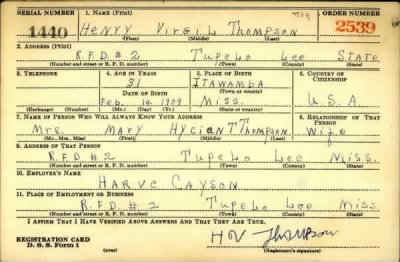 SERIAL NUMBER 1. NAME (Print) ORDER NUMBER
1440 HENRY VIRGIL THOMPSON 2539
(First) (Middle) (Last)
2. ADDRESS (Print)
R.F.D # 2 TUPELO LEE STATE
(Number and street or R. F. D. number) (Town) (County) (State)
3. TELEPHONE 4. AGE IN YEARS 5. PLACE OF BIRTH 6. COUNTRY OF CITIZENSHIP
31 ITAWAMBA
DATE OF BIRTH (Town or county)
Feb. 14 1909 MISS. U.S.A
(Exchange) (Number) (Mo.) (Day) (Yr.) (State or country)
7. NAME OF PERSON WHO WILL ALWAYS KNOW YOUR ADDRESS 8. RELATIONSHIP OF THAT PERSON
Mrs. MARY HYCIANT THOMPSON Wife
(Mr., Mrs., Miss) (First) (Middle) (Last)
9. ADDRESS OF THAT PERSON
R.F.D # 2 TUPELO LEE MISS.
(Number and street or R. F. D. number) (Town) (County) (State)
10. EMPLOYER'S NAME
HARVE CAYSON
11. PLACE OF EMPLOYMENT OR BUSINESS
R.F.D. # 2 TUPELO LEE MISS
(Number and street or R. F. D. number) (Town) (County) (State)
I AFFIRM THAT I HAVE VERIFIED ABOVE ANSWERS AND THAT THEY ARE TRUE.
REGISTRATION CARD
D. S. S. Form 1 (over) H V Thompson
(Registrant's signature)